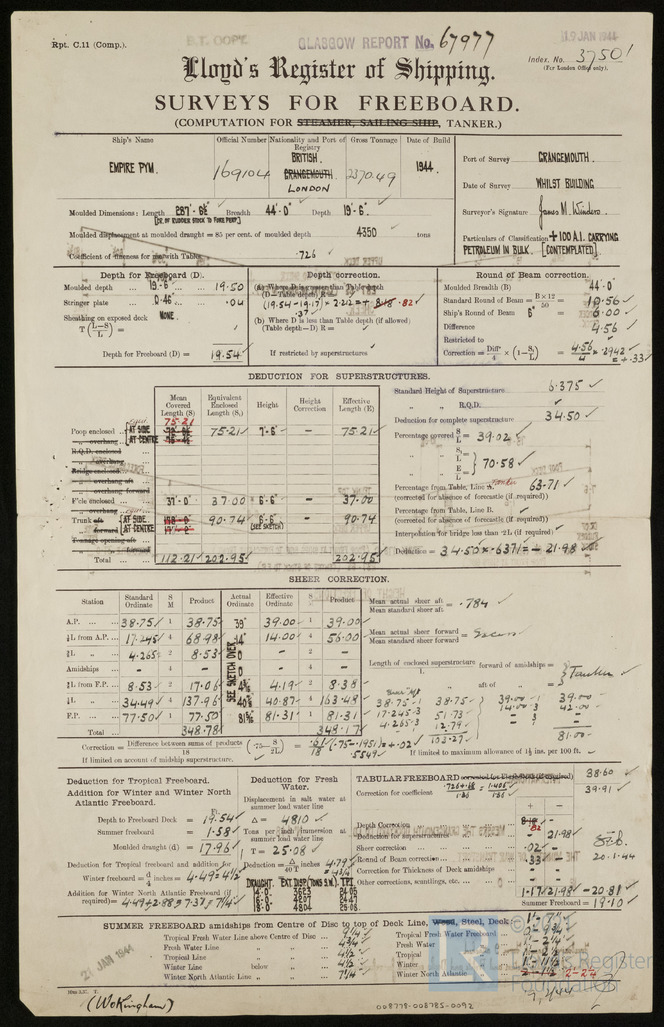 Rpt. C.11 (Comp.).
B.T. COPY.
GLASGOW REPORT No. 67977
19 JAN 1944
Index. No. 37501
(For London Office only).
Lloyd's Register of Shipping.
SURVEYS FOR FREEBOARD.
(COMPUTATION FOR STEAMER, SAILING SHIP, TANKER.)
Ship's Name
Official Number
Nationality and Port of Registry
Gross Tonnage
Date of Build
EMPIRE PYM.
169104
BRITISH.
GRANGEMOUTH.
LONDON
2370.49
1944.
Port of Survey GRANGEMOUTH.
Date of Survey WHILST BUILDING
Surveyor's Signature James M. Winders
Particulars of Classification +100 A.1. CARRYING
PETROLEUM IN BULK. [CONTEMPLATED].
Moulded Dimensions: Length 287'-6½" Breadth 44'-0" Depth 19'-6"
Moulded displacement at moulded draught = 85 per cent. of moulded depth 4350 tons
Coefficient of fineness for use with Tables .726
Depth for Freeboard (D).
Moulded depth ... 19'-6" ... 19.50
Stringer plate ... 0.46" ... .04
Sheathing on exposed deck NONE.
T (L-S/L) =
Depth for Freeboard (D) = 19.54
Depth correction.
(a) Where D is greater than Table depth
(D—Table depth) R =
(19.54 - 19.17) × 2.22 = + .82
.37
(b) Where D is less than Table depth (if allowed)
(Table depth—D) R =
If restricted by superstructures
Round of Beam correction.
Moulded Breadth (B) 44'.0"
Standard Round of Beam = B×12/50 = 10.56
Ship's Round of Beam 6" = 6.00
Difference 4.56
Restricted to
Correction = Diff/4 × (1-S/L) = 4.56/4 × .2942 = +.33
DEDUCTION FOR SUPERSTRUCTURES.
Mean Covered Length (S)
Equivalent Enclosed Length (S₁)
Height
Height Correction
Effective Length (E)
Poop enclosed AT SIDE 75.21 75.21 7'-6" - 75.21
" overhang AT CENTRE
R.Q.D. enclosed
" overhang
Bridge enclosed
" overhang aft
" overhang forward
F'cle enclosed 37'.0" 37.00 6'-6" - 37.00
" overhang
Trunk aft AT SIDE. 90.74 6'-6" - 90.74
" forward AT CENTRE (SEE SKETCH)
Tonnage opening aft
" " forward
Total 112.21 202.95 202.95
Standard Height of Superstructure 6.375
" " R.Q.D.
Deduction for complete superstructure 34.50
Percentage covered S/L = 39.02
" " S₁/L =
" " E/L = 70.58
Percentage from Table, Line Tanker 63.71
(corrected for absence of forecastle (if required))
Percentage from Table, Line B.
(corrected for absence of forecastle (if required))
Interpolation for bridge less than ·2L (if required)
Deduction = 34.50 × .6371 = - 21.98
SHEER CORRECTION.
Station
Standard Ordinate
S M
Product
Actual Ordinate
Effective Ordinate
Product
A.P. 38.75 1 38.75 39" 39.00 1 39.00
⅙L from A.P. 17.245 4 68.98 14" 14.00 4 56.00
⅓L " 4.265 2 8.53 0 - 2 -
Amidships - 4 - 0 - 4 -
⅓L from F.P. 8.53 2 17.06 4.19 2 8.38
⅙L " 34.49 4 137.96 40⅞ 40.87 4 163.48
F.P. 77.50 1 77.50 81.31 1 81.31
Total 348.78 348.17
SEE SKETCH OVER
Mean actual sheer aft / Mean standard sheer aft = .784
Mean actual sheer forward / Mean standard sheer forward = Excess
Length of enclosed superstructure forward of amidships = Tanker
" " aft of " =
38.75·1 38.75 39.00·1 39.00
17.245·3 51.73 14.00·3 42.00
4.265·3 12.79
103.27 81.00
Correction = Difference between sums of products/18 (·75—S/2L) = .61/18 (.75-.1951) = +.02
.5549
If limited on account of midship superstructure.
If limited to maximum allowance of 1½ ins. per 100 ft.
Deduction for Tropical Freeboard.
Addition for Winter and Winter North Atlantic Freeboard.
Ft.
Depth to Freeboard Deck = 19.54
Summer freeboard = 1.58
Moulded draught (d) = 17.96
Deduction for Tropical freeboard and addition for
Winter freeboard = d/4 inches = 4.49 = 4½"
Addition for Winter North Atlantic Freeboard (if
required) = 4.49 + 2.88 = 7.37 = 7¼"
Deduction for Fresh Water.
Displacement in salt water at
summer load water line
Δ = 4810
Tons per inch immersion at
summer load water line
T = 25.08
Deduction = Δ/40T inches = 4.79 = 4¾"
DRAUGHT. EXT. DISP. (TONS S.W.) T.P.I.
14'.0" 3623 24.05
16'.0" 4207 24.47
18'.0" 4804 25.08
TABULAR FREEBOARD corrected for Flush Deck (if required) 38.60
Correction for coefficient .726+.68/1.36 = 1.406/1.36 39.91
+ -
Depth Correction .82
Deduction for superstructures - 21.98
Sheer correction .02 -
Round of Beam correction .33 -
Correction for Thickness of Deck amidships - -
Other corrections, scantlings, etc. - -
1.17 21.98 -20.81
Summer Freeboard = 19.10
20.1.44
SUMMER FREEBOARD amidships from Centre of Disc to top of Deck Line, Wood, Steel, Deck
Tropical Fresh Water Line above Centre of Disc 9¼"
Fresh Water Line " " 4¾"
Tropical Line " " 4½"
Winter Line below " 4½"
Winter North Atlantic Line " " 7¼"
Tropical Fresh Water Freeboard
Fresh Water "
Tropical "
Winter "
Winter North Atlantic "
21 JAN 1944
Lloyd's Register
Foundation
(Wokingham)
008778-008785-0092